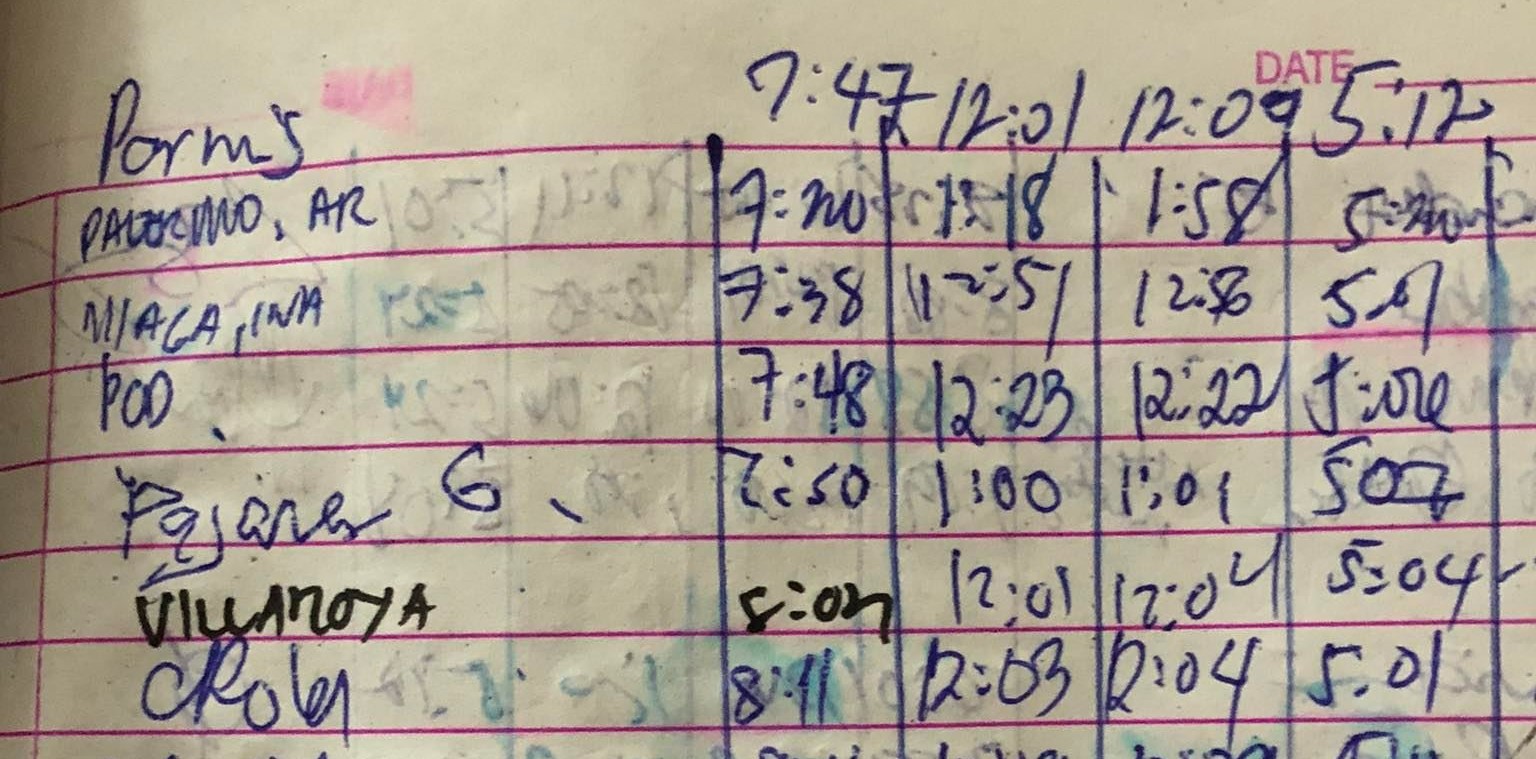 DATE
Porms 7:47 12:01 12:09 5:12
PALERMO, AR 7:20 1:18 1:58 5:20
NIAGA, INA 7:38 12:51 12:56 5:01
POD 7:48 12:23 12:22 5:02
Pajares G 7:50 1:00 1:01 507
VILLANOYA 8:02 12:01 12:04 5:04
8:11 12:03 12:04 5:01